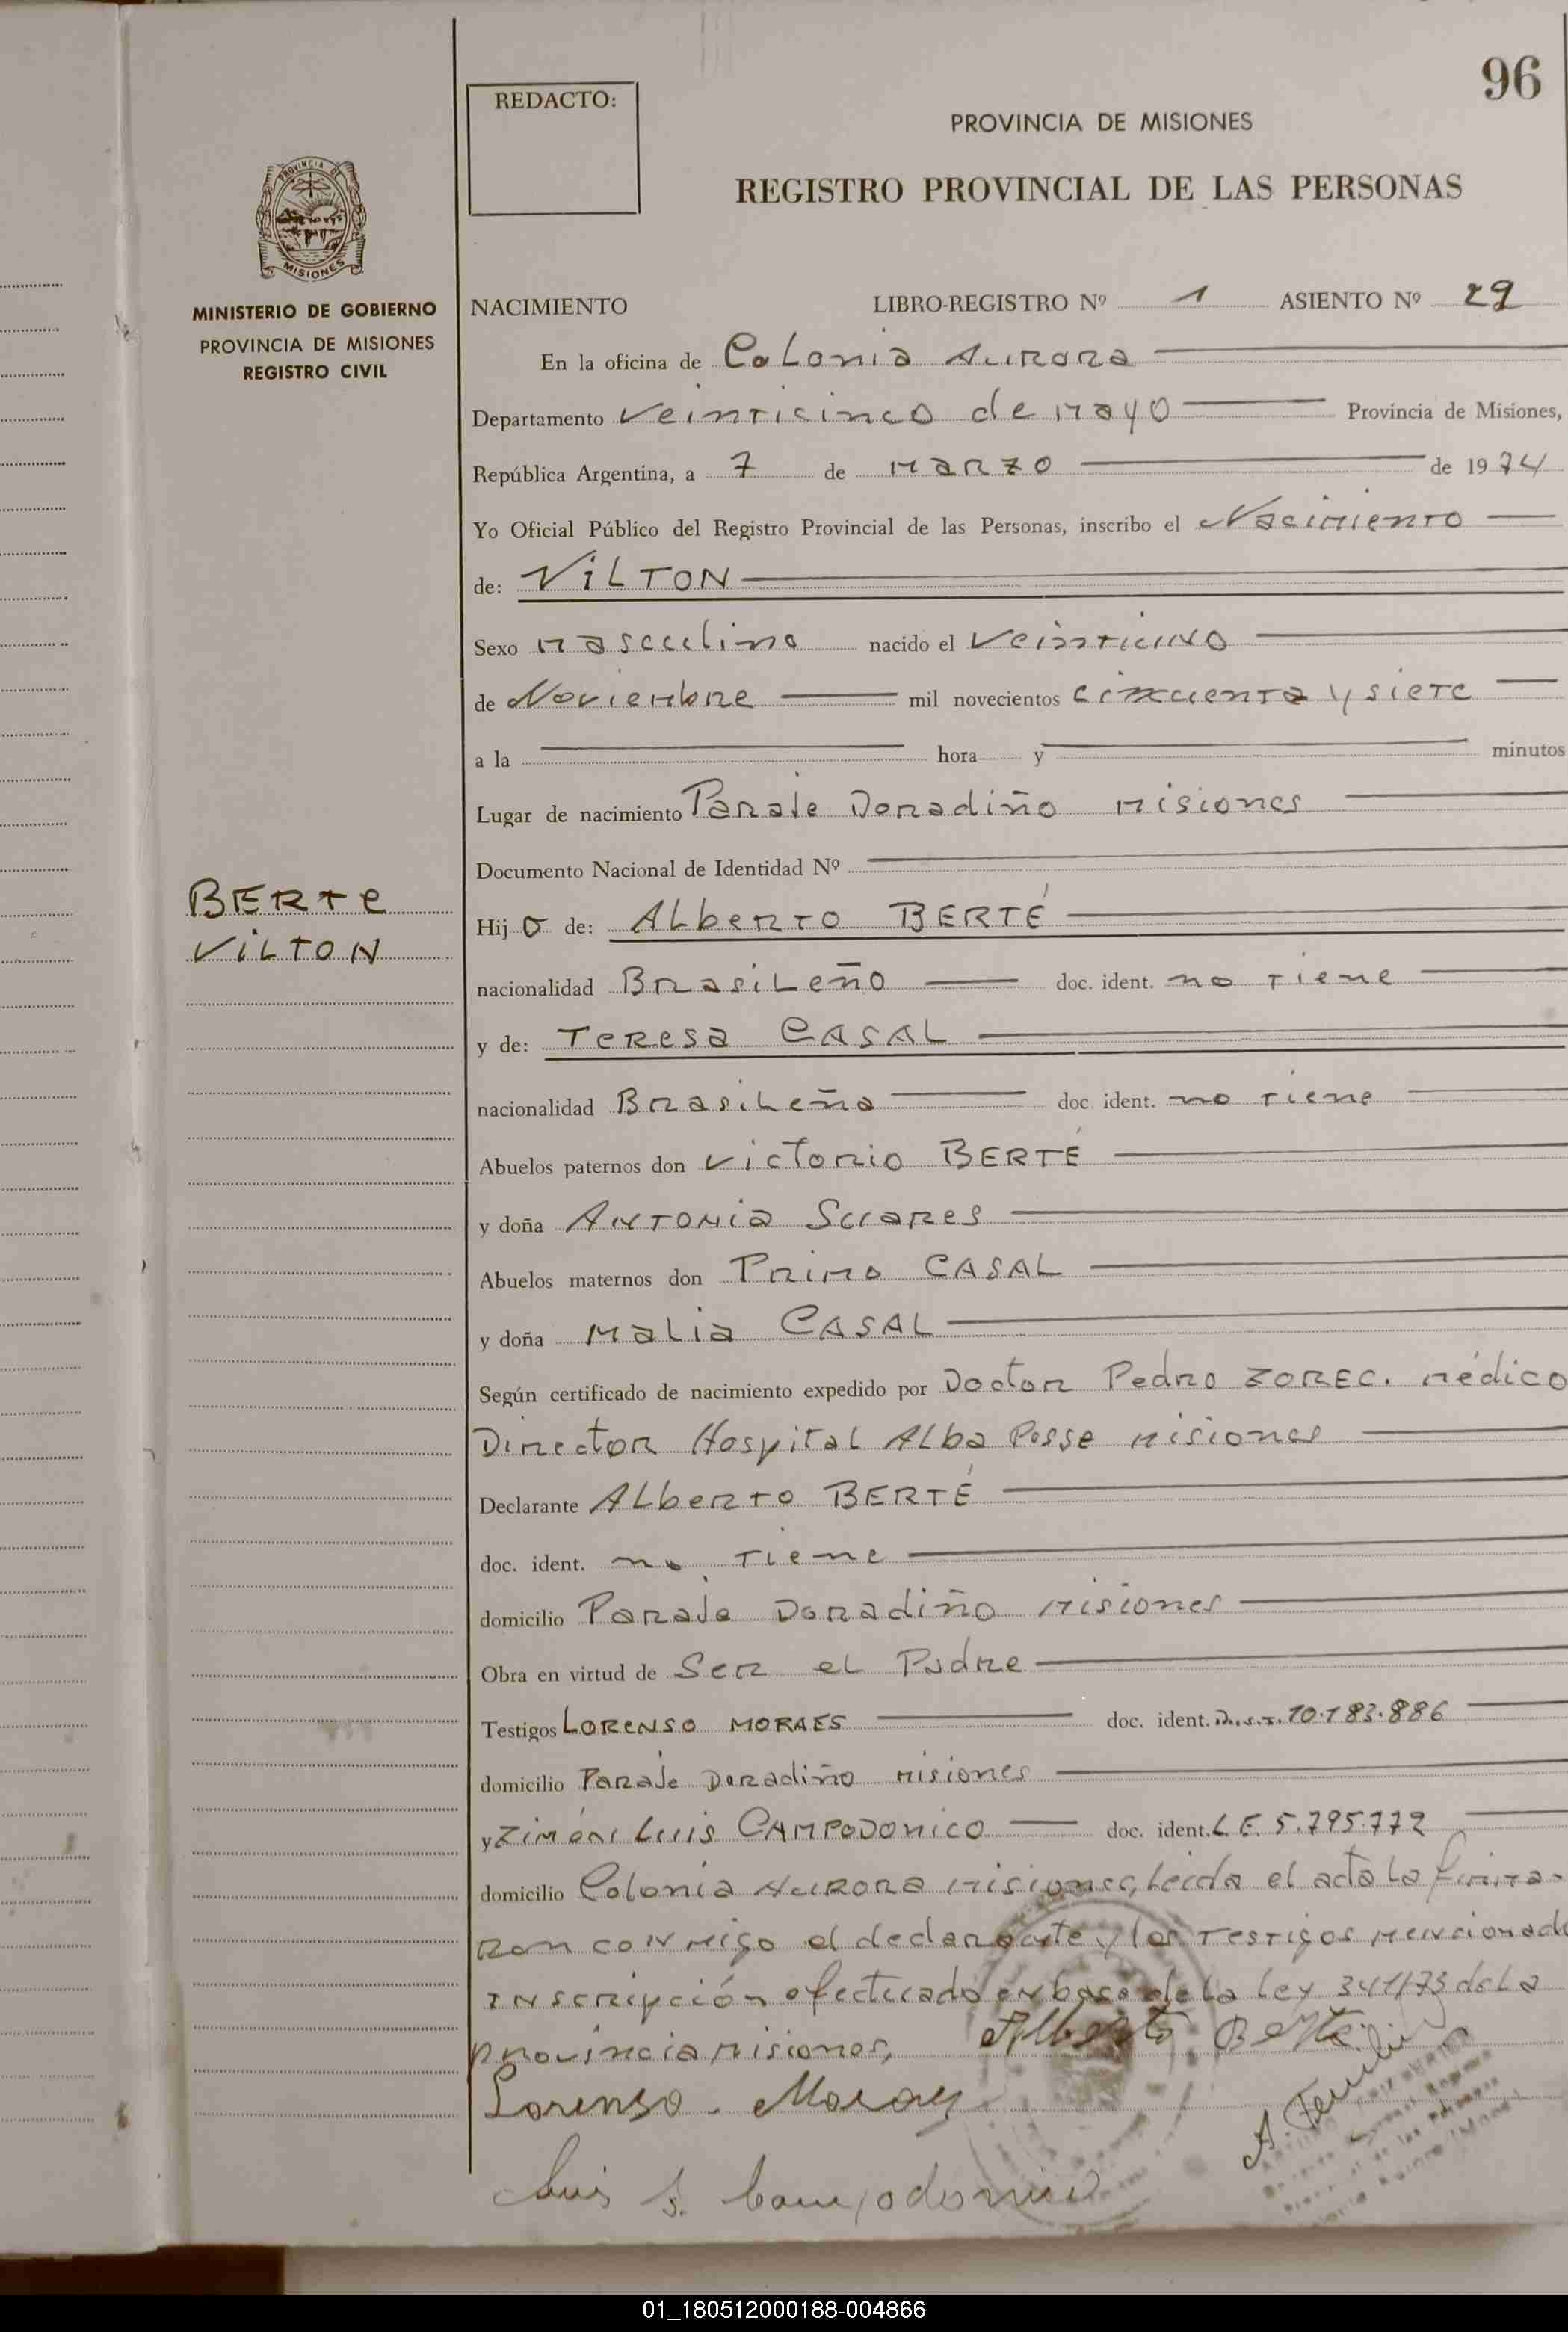 96
REDACTO:
PROVINCIA DE MISIONES
REGISTRO PROVINCIAL DE LAS PERSONAS
PROVINCIA DE
MISIONES
MINISTERIO DE GOBIERNO
PROVINCIA DE MISIONES
REGISTRO CIVIL
NACIMIENTO LIBRO-REGISTRO Nº 1 ASIENTO Nº 29
En la oficina de Colonia Aurora
Departamento Veinticinco de Mayo Provincia de Misiones,
República Argentina, a 7 de Marzo de 1974
Yo Oficial Público del Registro Provincial de las Personas, inscribo el Nacimiento
de: ViLTON
Sexo masculino nacido el Veintiuno
de Noviembre mil novecientos cincuenta y siete
a la hora y minutos
Lugar de nacimiento Paraje Doradiño Misiones
Documento Nacional de Identidad Nº
BERTe
ViLTON
Hijo de: Alberto BERTÉ
nacionalidad Brasileño doc. ident. no tiene
y de: Teresa CASAL
nacionalidad Brasileña doc. ident. no tiene
Abuelos paternos don Victorio BERTÉ
y doña Antonia Suares
Abuelos maternos don Primo CASAL
y doña Malia CASAL
Según certificado de nacimiento expedido por Doctor Pedro ZOREC. Médico
Director Hospital Alba Posse Misiones
Declarante Alberto BERTÉ
doc. ident. no tiene
domicilio Paraje Doradiño Misiones
Obra en virtud de Ser el Padre
Testigos LORENSO MORAES doc. ident. 10.183.886
domicilio Paraje Doradiño Misiones
y Zimón Luis CAMPODONICO doc. ident. L.E. 5.795.772
domicilio Colonia Aurora Misiones, leida el acta la firma-
ron conmigo el declarante y los testigos mencionado
inscripción efectuado en base de la ley 341/73 de la
provincia Misiones,
Alberto Berté
Lorenso Moraes
Luis S. Campodonico
01_180512000188-004866